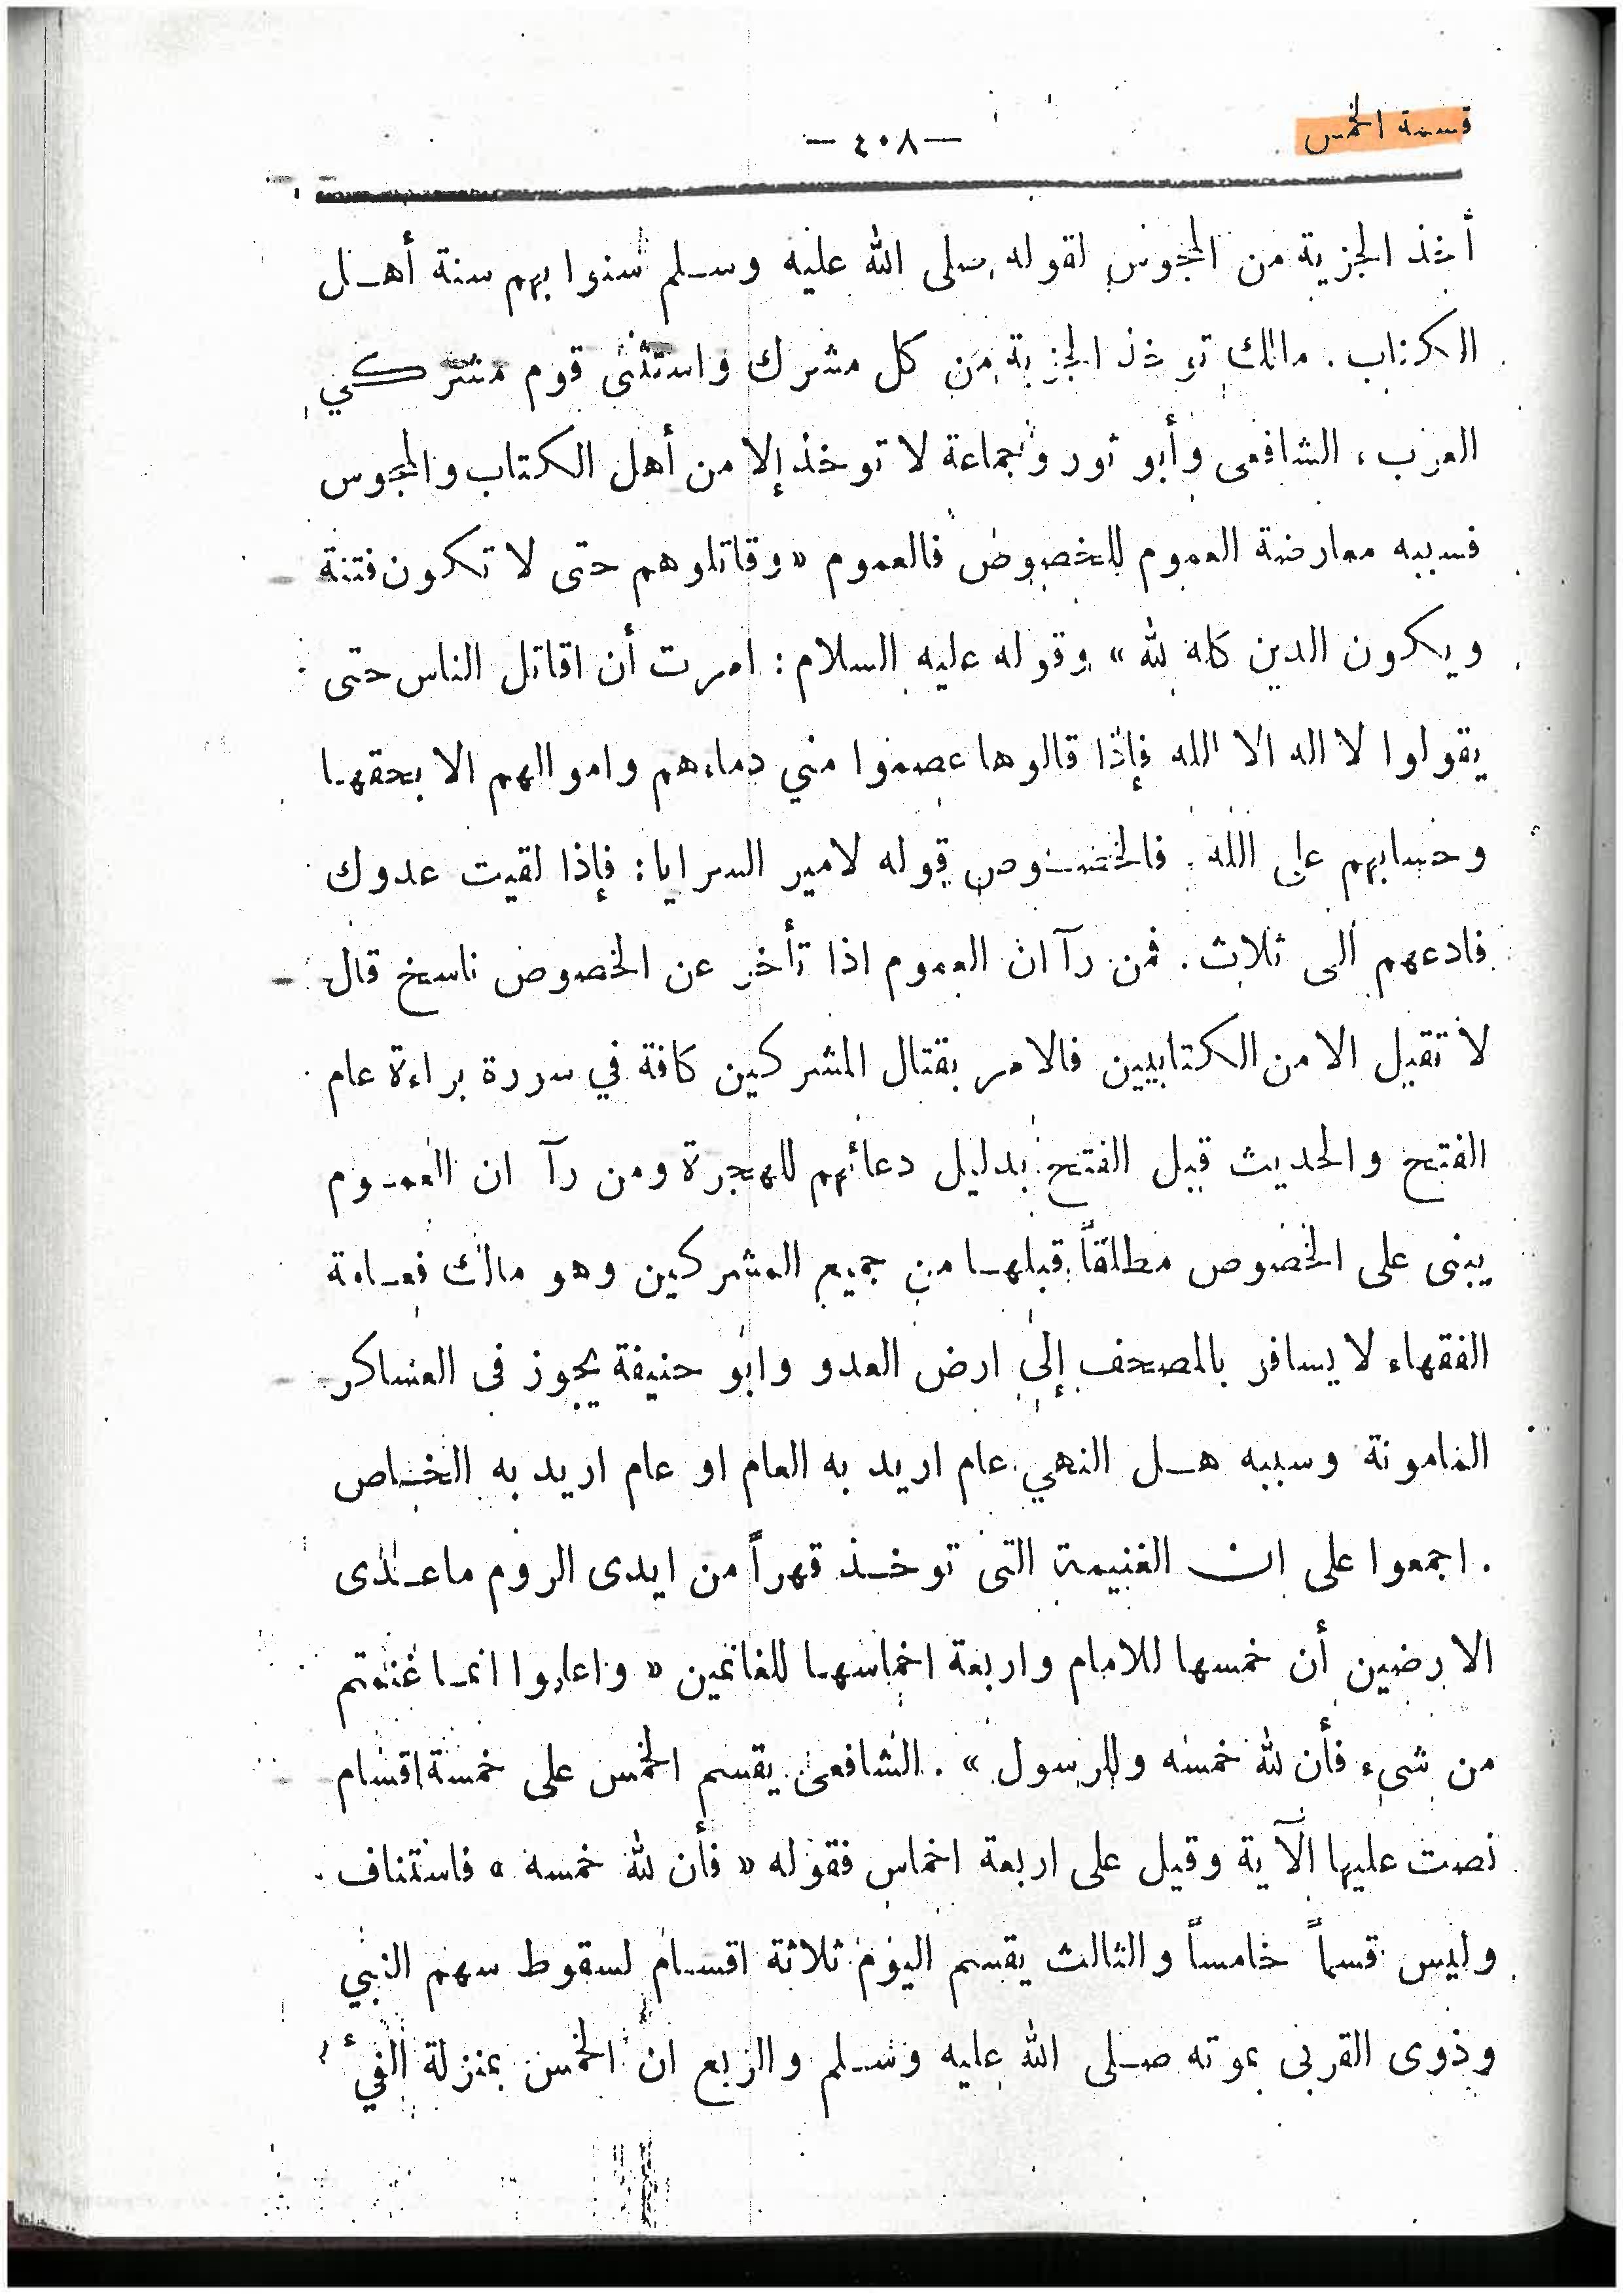 قسمة الخمس
— ٤٠٨ —
أخذ الجزية من المجوس لقوله صلى الله عليه وسلم سنوا بهم سنة أهل
الكتاب . مالك توخذ الجزية من كل مشرك واستثنى قوم مشركي
العرب ، الشافعى وأبو ثور وجماعة لا توخذ إلا من أهل الكتاب والمجوس
فسببه معارضة العموم للخصوص فالعموم « وقاتلوهم حتى لا تكون فتنة
ويكون الدين كله لله » وقوله عليه السلام : امرت أن اقاتل الناس حتى
يقولوا لا اله الا الله فإذا قالوها عصموا مني دماءهم واموالهم الا بحقها
وحسابهم على الله . فالخصوص قوله لامير السرايا : فإذا لقيت عدوك
فادعهم الى ثلاث . فمن رآ ان العموم اذا تأخر عن الخصوص ناسخ قال
لا تقبل الا من الكتابيين فالامر بقتال المشركين كافة في سورة براءة عام
الفتح والحديث قبل الفتح بدليل دعائهم للهجرة ومن رآ ان العموم
يبنى على الخصوص مطلقاً قبلها من جميع المشركين وهو مالك فعامة
الفقهاء لا يسافر بالمصحف إلى ارض العدو وابو حنيفة يجوز فى العساكر
المامونة وسببه هل النهي عام اريد به العام او عام اريد به الخاص
. اجمعوا على ان الغنيمة التى توخذ قهراً من ايدى الروم ماعدى
الارضين أن خمسها للامام واربعة اخماسها للغانمين « واعلموا انما غنمتم
من شىء فأن لله خمسه وللرسول » . الشافعى يقسم الخمس على خمسة اقسام
نصت عليها الآية وقيل على اربعة اخماس فقوله « فأن لله خمسه » فاستئناف
وليس قسماً خامساً والثالث يقسم اليوم ثلاثة اقسام لسقوط سهم النبي
وذوى القربى بموته صلى الله عليه وسلم والربع ان الخمس بمنزلة الفيء